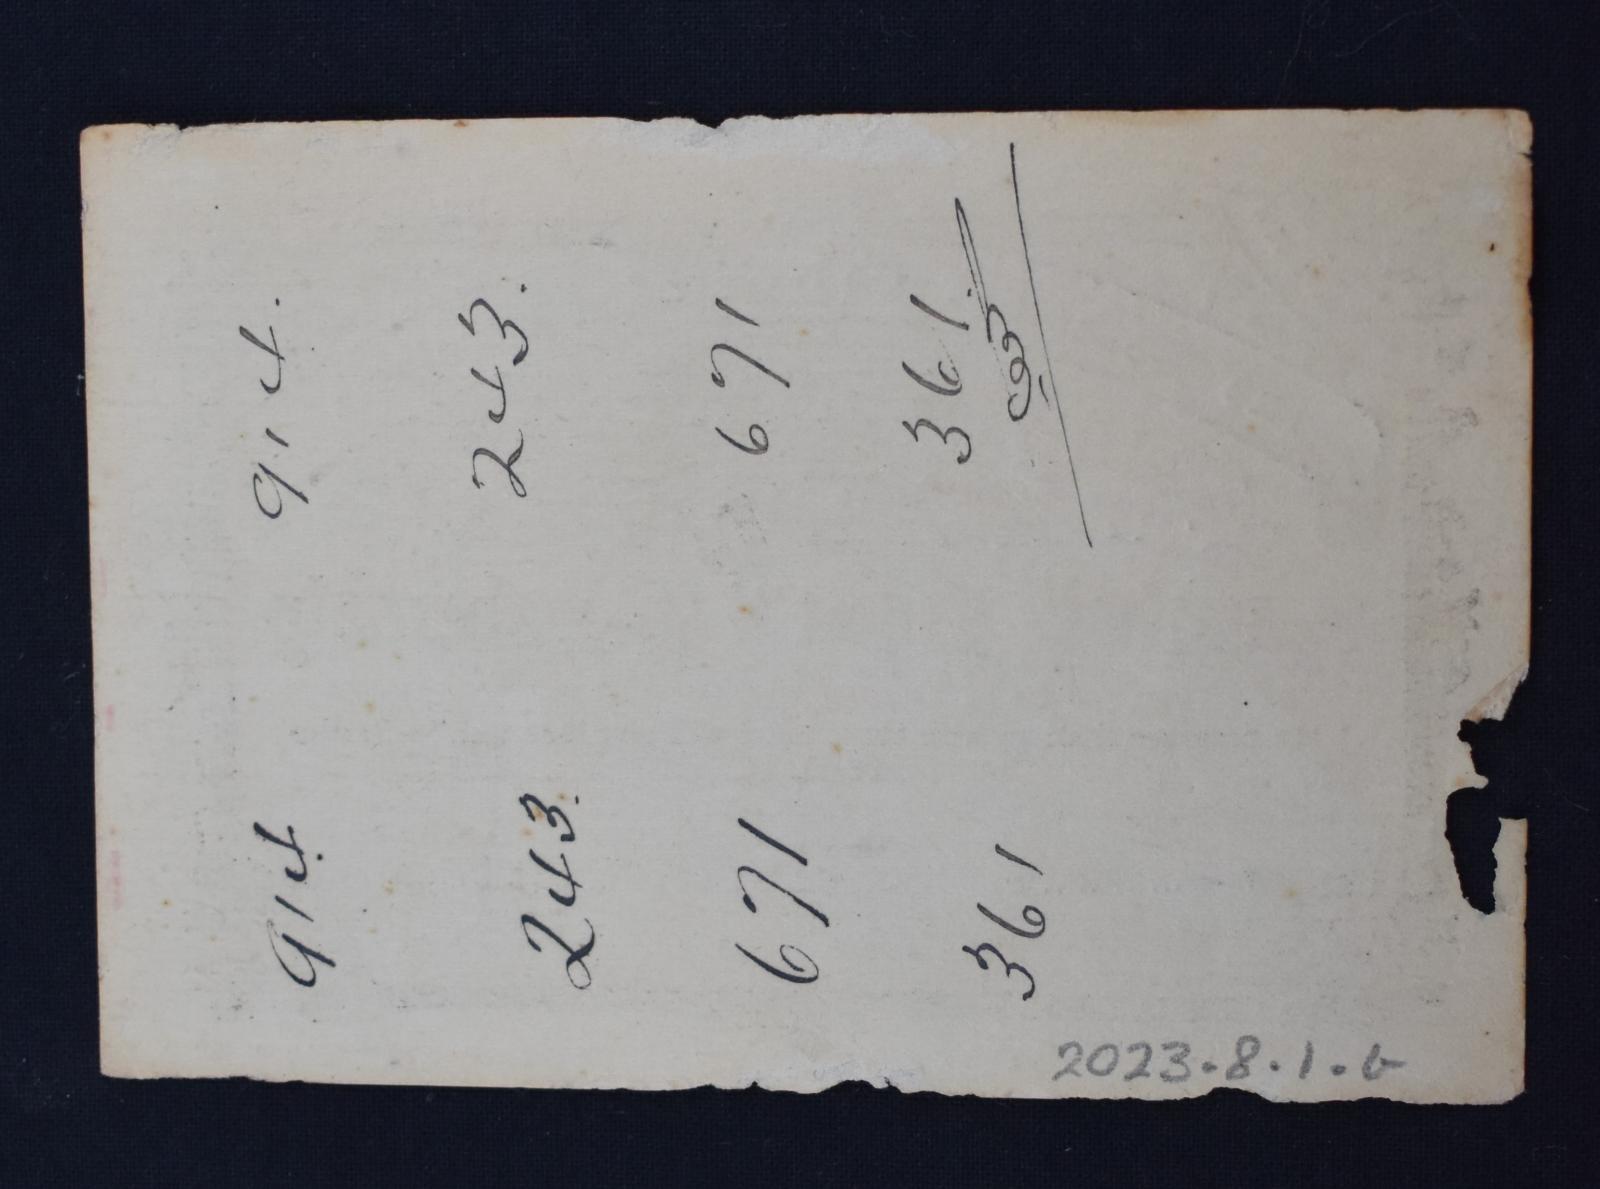 914 914.
243. 243.
671 671
361 361.
2023.8.1.b